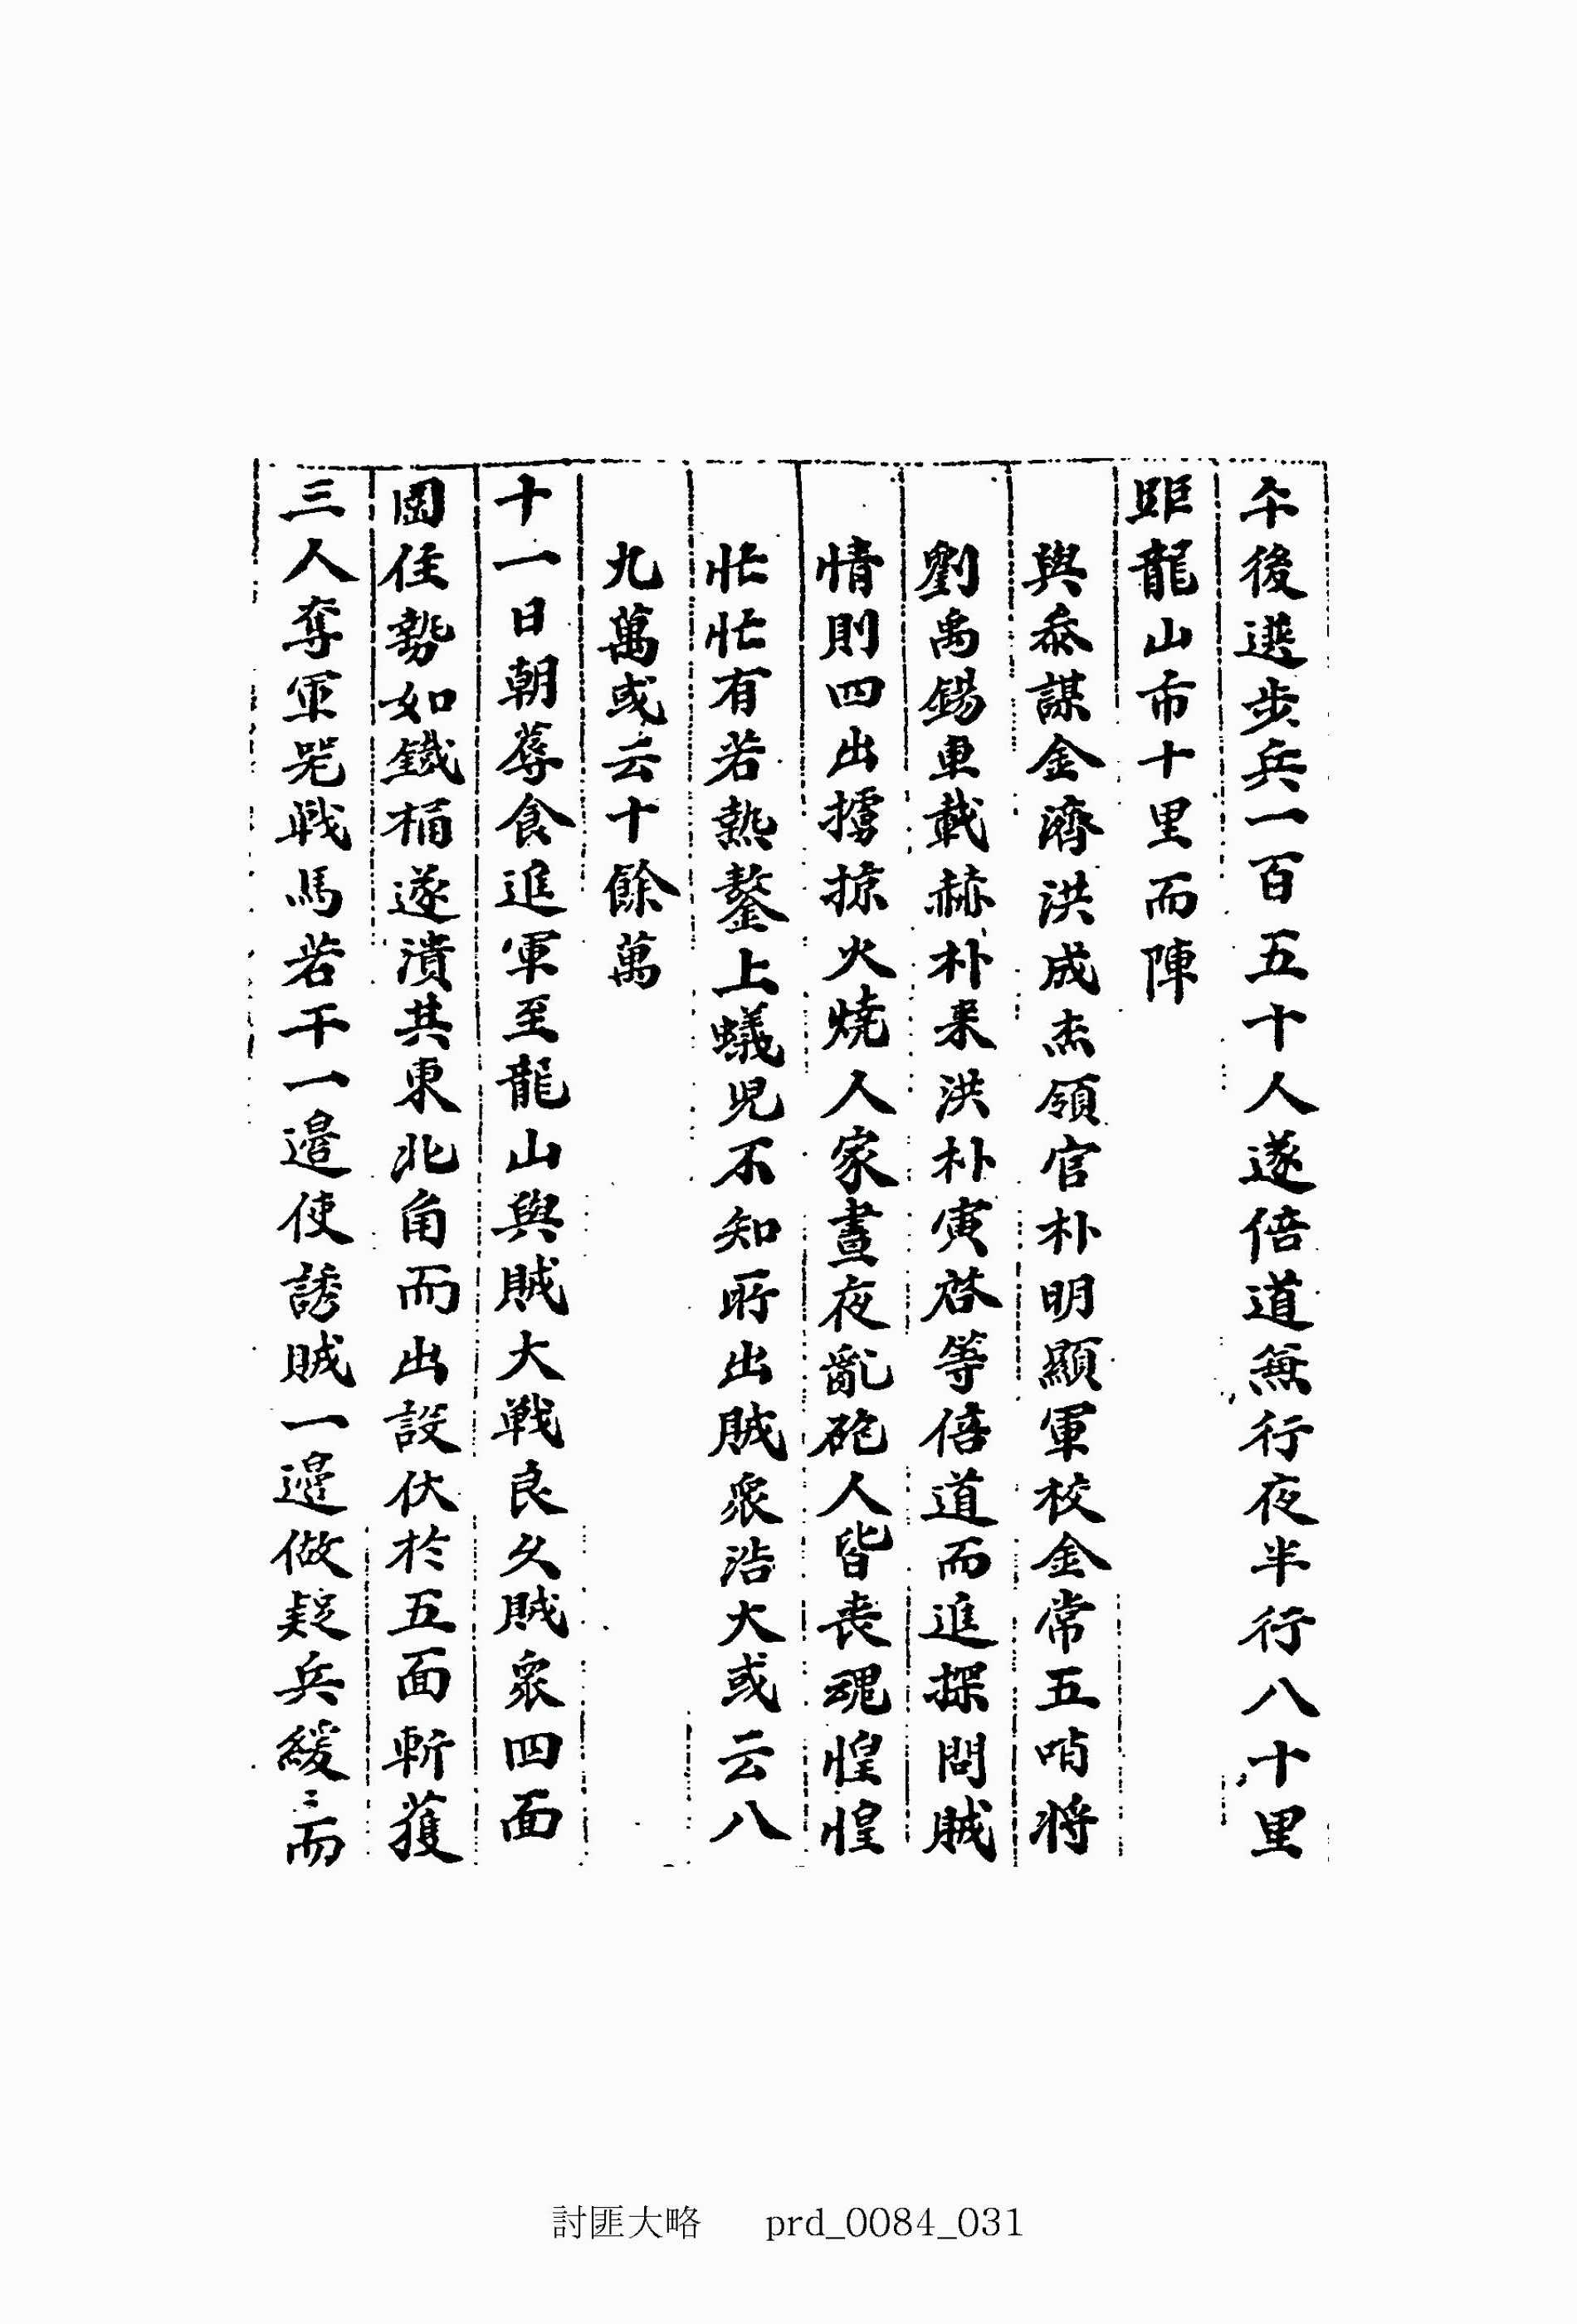 午後選步兵一百五十人遂倍道兼行夜半行八十里
距龍山市十里而陣
與叅謀金濟洪成杰領官朴明顯軍校金常五哨將
劉禹錫車載赫朴来洪朴寅啓等倍道而進探問賊
情則四出擄掠火燒人家晝夜亂砲人皆喪魂惶惶
忙忙有若熱鏊上蟻児不知所出賊衆浩大或云八
九萬或云十餘萬
十一日朝蓐食進軍至龍山與賊大戰良久賊衆四面
圍住勢如鐵桶遂潰其東北角而出設伏於五面斬獲
三人奪軍器戰馬若干一邊使誘賊一邊做疑兵緩〻而
討匪大略 prd_0084_031